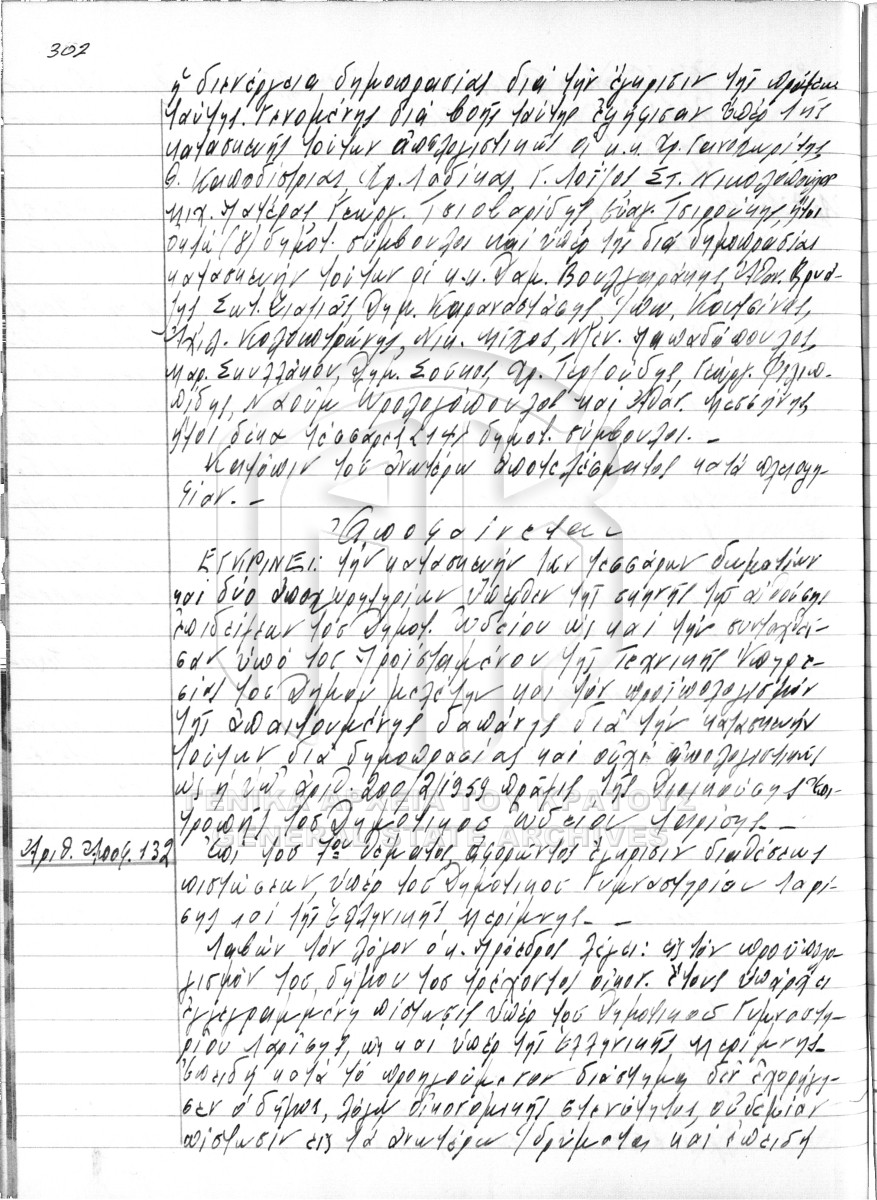 302
ἡ διενέργεια δημοπρασίας διά τήν ἔγκρισιν τῆς πράξεως
ταύτης. Γενομένης διά βοῆς ταύτης ἐψήφισαν ὑπέρ τῆς
κατασκευῆς τούτων ἀπολογιστικῶς οἱ κ.κ. Χρ.
Θ. Καποδίστριας, Χρ. Λαδίκας, Γ. Λοΐζος, Στ. Νικολόπουλος
Μιχ. Πατέρας Γεωργ. Τσιοβαρίδης, Εὐαγ. Τσιρούκης, ἤτοι
ὀκτώ (8) δημοτ. σύμβουλοι καί ὑπέρ τῆς διά δημοπρασίας
κατασκευήν τούτων οἱ κ.κ. Δαμ. Βουλγαράκης Ἀθαν. Βρυώ-
της Σωτ. Ζιαζιᾶς, Δημ. Καραναστάσης, Ἱππ. Κουτσίνας,
Ἀχιλ. Κολοκοτρώνης, Νικ. Μίχος, Ξεν. Παπαδόπουλος,
Μαρ. Σκυλλάκου, Δημ. Σούκος, Χρ. Τερζούδης, Γεώργ. Φιλιπ-
πίδης, Ναούμ καί Ἀθαν. Μεσσήνης
ἤτοι δέκα τέσσαρες (14) δημοτ. σύμβουλοι. –
Κατόπιν τοῦ ἀνωτέρω ἀποτελέσματος κατά πλειοψη-
φίαν. –
Ἀποφαίνεται
ΕΓΚΡΙΝΕΙ: τήν κατασκευήν τῶν τεσσάρων δωματίων
καί δύο ἀποχωρητηρίων ὄπισθεν τῆς σκηνῆς τῆς αἰθούσης
ἐπιδείξεων τοῦ Δημοτ. Ὠδείου ὡς καί τήν συνταχθεῖ-
σαν ὑπό τοῦ Προϊσταμένου τῆς Τεχνικῆς Ὑπηρε-
σίας τοῦ Δήμου μελέτην καί τόν προϋπολογισμόν
τῆς ἀπαιτουμένης δαπάνης διά τήν κατασκευήν
τούτων διά δημοπρασίας καί οὐχί ἀπολογιστικῶς
ὡς ἡ ὑπ' ἀριθ. 200/2/1959 πρᾶξις τῆς Διοικούσης Ἐπι-
τροπῆς τοῦ Δημοτικοῦ Ὠδείου Λαρίσης. –
ΓΕΝΙΚΑ ΑΡΧΕΙΑ ΤΟΥ ΚΡΑΤΟΥΣ
GENERAL STATE ARCHIVES
Ἀριθ. Ἀποφ. 132
Ἐπί τοῦ 7ου θέματος ἀφορῶντος ἔγκρισιν διαθέσεως
πιστώσεων, ὑπέρ τοῦ Δημοτικοῦ Γυμναστηρίου Λαρί-
σης καί τῆς Ἑλληνικῆς Μερίμνης. –
Λαβών τόν λόγον ὁ κ. Πρόεδρος λέγει: εἰς τόν προϋπολο-
γισμόν τοῦ δήμου τοῦ τρέχοντος οἰκον. ἔτους ὑπάρχει
ἐγγεγραμμένη πίστωσις ὑπέρ τοῦ Δημοτικοῦ Γυμναστη-
ρίου Λαρίσης, ὡς καί ὑπέρ τῆς Ἑλληνικῆς Μερίμνης.
Ἐπειδή κατά τό προηγούμενον διάστημα δέν ἐχορήγη-
σεν ὁ δῆμος, λόγῳ οἰκονομικῆς στενότητος, οὐδεμίαν
πίστωσιν εἰς τά ἀνωτέρω ἱδρύματα καί ἐπειδή